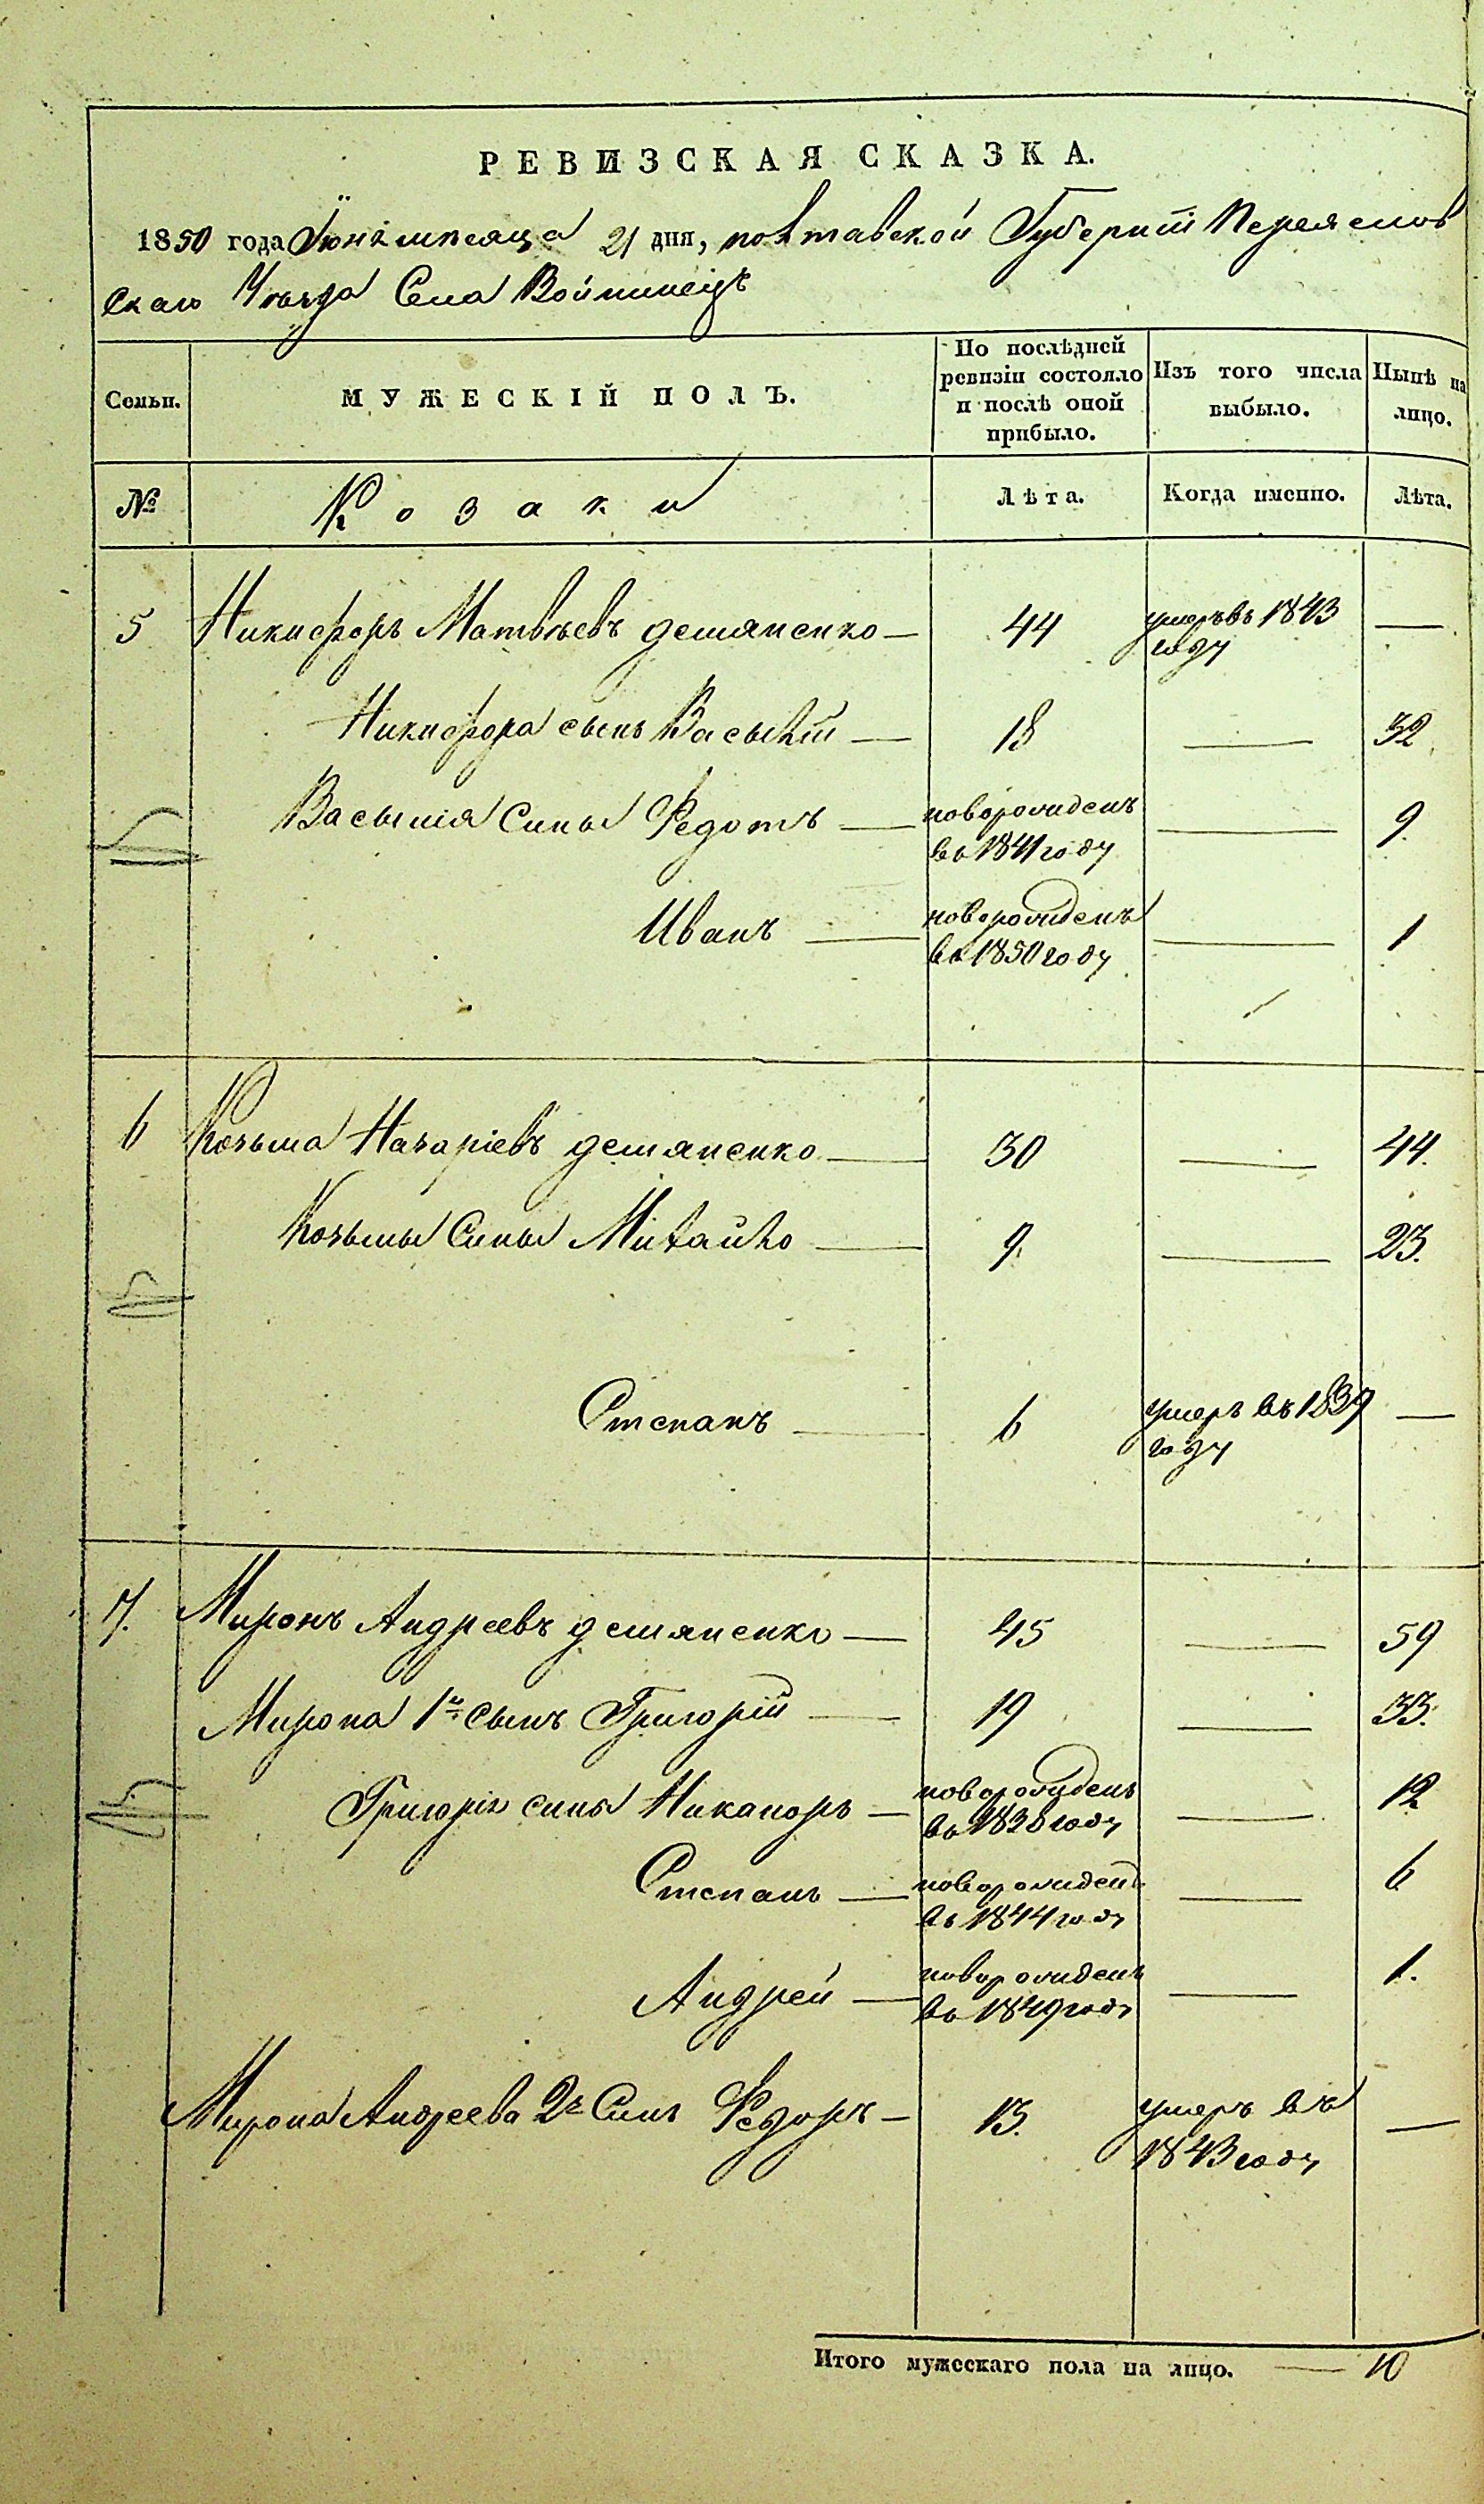 РЕВИЗСКАЯ СКАЗКА.
1850 года Іюня мѣсяца 21 дня, Полтавской Губерніи Переяслов
скаго Уѣзда Села Войтовецъ
Семьи.
МУЖЕСКІЙ ПОЛЪ.
По послѣдней ревизіи состояло и послѣ оной прибыло.
Изъ того числа выбыло.
Нынѣ на лицо.
№
Козаки
Лѣта.
Когда именно.
Лѣта.
5 Никифоръ Матвѣевъ Демяненко — 44 умеръ въ 1843 году —
Никифора сынъ Василій — 18 — 32
Василія сины Федотъ — новорожденъ въ 1841 году — 9.
Иванъ — новорожденъ въ 1850 году — 1
6 Козьма Назаріевъ Демяненко — 30 — 44.
Козьмы сины Михайло — 9. — 23.
Степанъ — 6 умеръ въ 1839 году —
7. Миронъ Андреевъ Демяненко — 45 — 59
Мирона 1й сынъ Григорій — 19 — 33.
Григорія сины Никаноръ — новорожденъ въ 1838 году — 12
Степанъ — новорожденъ въ 1844 году — 6
Андрей — новорожденъ въ 1849 году — 1.
Мирона Андреева 2й Синъ Федоръ — 13. умеръ въ 1843 году —
Итого мужескаго пола на лицо. — 10